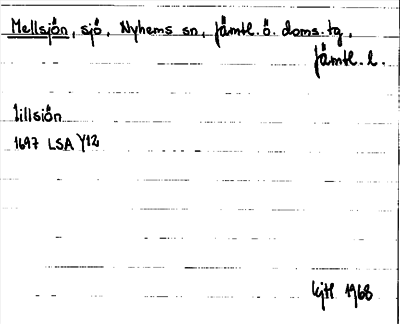 Mellsjön, sjö, Nyhems sn, Jämtl. ö. doms. tg,
Jämtl. l.
Lillsiön
1697 LSA Y12
1968